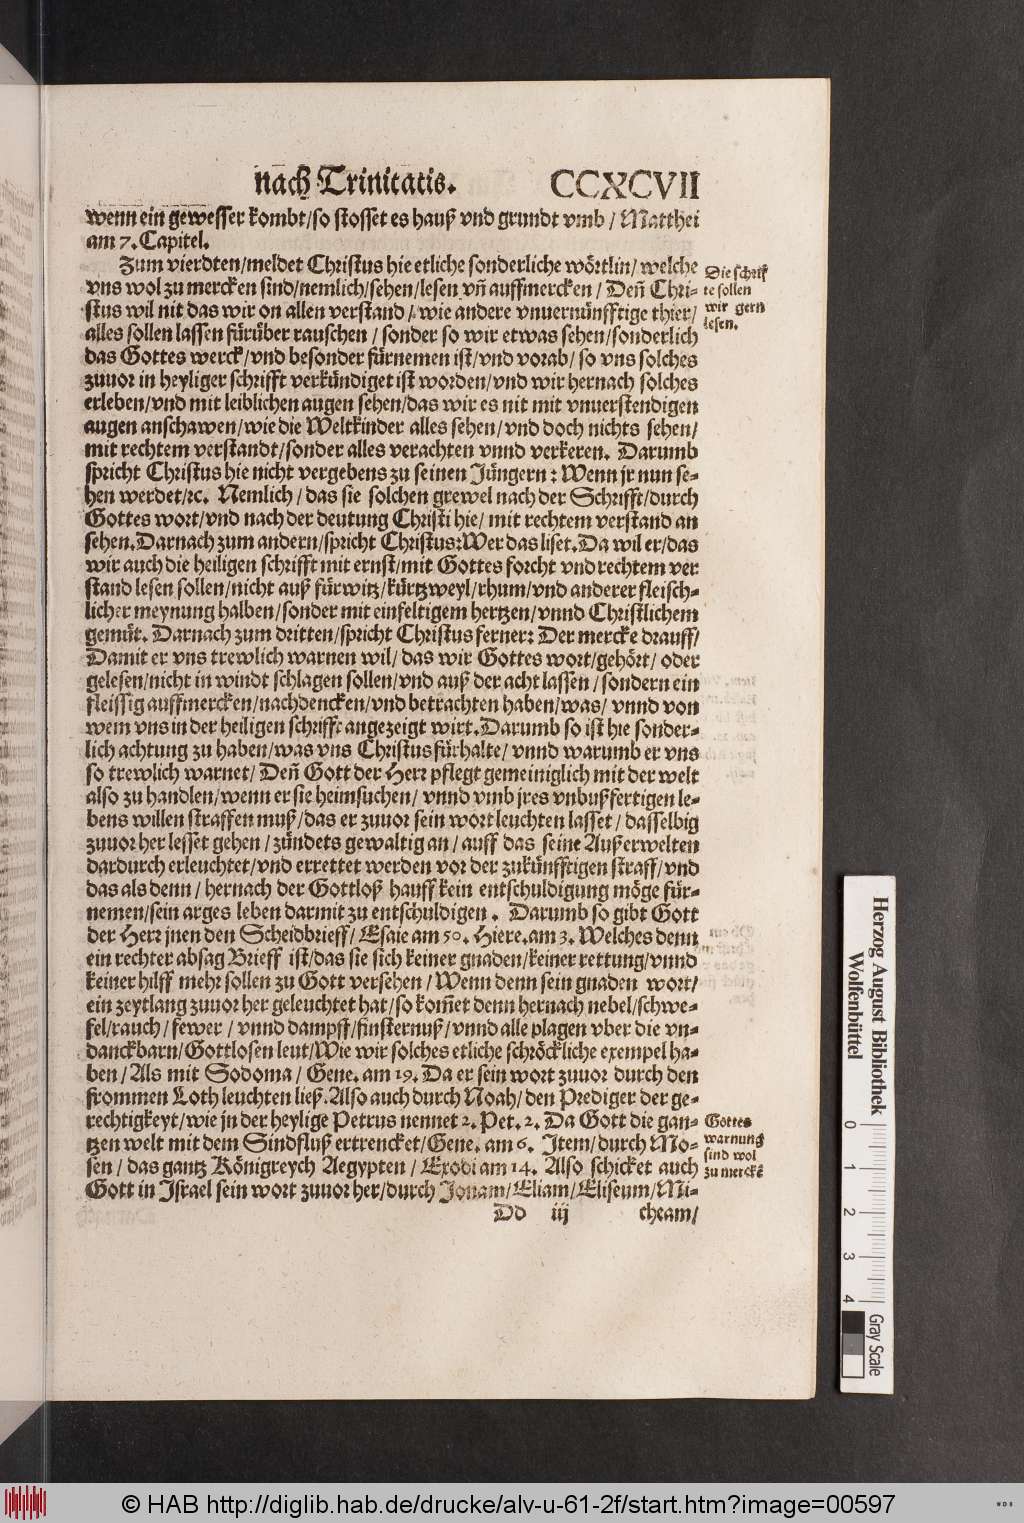 nach Trinitatis. CCXCVII
wenn ein gewesser kombt/so stosset es hauß vnd grundt vmb / Matthei
am 7. Capitel.
Zum vierdten/meldet Christus hie etliche sonderliche wörtlin/ welche
vns wol zu mercken sind/nemlich/sehen/lesen vñ auffmercken / Deñ Chri-
stus wil nit das wir on allen verstand / wie andere vnuernünfftige thier/
alles sollen lassen fürüber rauschen / sonder so wir etwas sehen/sonderlich
das Gottes werck/vnd besonder fürnemen ist/vnd vorab/ so vns solches
zuuor in heyliger schrifft verkündiget ist worden/vnd wir hernach solches
erleben/vnd mit leiblichen augen sehen/das wir es nit mit vnuerstendigen
augen anschawen/wie die Weltkinder alles sehen/vnd doch nichts sehen/
mit rechtem verstandt/sonder alles verachten vnnd verkeren. Darumb
spricht Christus hie nicht vergebens zu seinen Jüngern: Wenn jr nun se-
hen werdet/ꝛc. Nemlich / das sie solchen grewel nach der Schrifft/durch
Gottes wort/vnd nach der deutung Christi hie/ mit rechtem verstand an
sehen. Darnach zum andern/spricht Christus: Wer das liset. Da wil er/das
wir auch die heiligen schrifft mit ernst/mit Gottes forcht vnd rechtem ver
stand lesen sollen/nicht auß fürwitz/kürtzweyl/rhum/vnd anderer fleisch-
licher meynung halben/sonder mit einfeltigem hertzen/vnnd Christlichem
gemüt. Darnach zum dritten/spricht Christus ferner: Der mercke drauff/
Damit er vns trewlich warnen wil/ das wir Gottes wort/gehört/ oder
gelesen/nicht in windt schlagen sollen/vnd auß der acht lassen / sondern ein
fleissig auffmercken/nachdencken/vnd betrachten haben/was/ vnnd von
wem vns in der heiligen schrifft angezeigt wirt. Darumb so ist hie sonder-
lich achtung zu haben/was vns Christus fürhalte/ vnnd warumb er vns
so trewlich warnet/ Deñ Gott der Herr pflegt gemeiniglich mit der welt
also zu handlen/wenn er sie heimsuchen/ vnnd vmb jres vnbußfertigen le-
bens willen straffen muß/das er zuuor sein wort leuchten lasset / dasselbig
zuuor her lesset gehen / zündets gewaltig an / auff das seine Außerwelten
dardurch erleuchtet/vnd errettet werden vor der zukünfftigen straff/vnd
das als denn / hernach der Gottloß hauff kein entschuldigung möge für-
nemen/sein arges leben darmit zu entschuldigen . Darumb so gibt Gott
der Herr jnen den Scheidbrieff/ Esaie am 50. Hiere. am 3. Welches denn
ein rechter absag Brieff ist/das sie sich keiner gnaden/keiner rettung/vnnd
keiner hilff mehr sollen zu Gott versehen / Wenn denn sein gnaden wort/
ein zeytlang zuuor her geleuchtet hat/so kom̃et denn hernach nebel/schwe-
fel/rauch / fewer / vnnd dampff/finsternuß/vnnd alle plagen vber die vn-
danckbarn/Gottlosen leut/Wie wir solches etliche schröckliche exempel ha-
ben / Als mit Sodoma / Gene. am 19. Da er sein wort zuuor durch den
frommen Loth leuchten ließ. Also auch durch Noah/ den Prediger der ge-
rechtigkeyt/wie jn der heylige Petrus nennet 2. Pet. 2. Da Gott die gan-
tzen welt mit dem Sindfluß ertrencket/Gene. am 6. Item/durch Mo-
sen / das gantz Königreych Aegypten / Exodi am 14. Also schicket auch
Gott in Israel sein wort zuuor her/durch Jonam/Eliam/Eliseum/Mi-
Dd iij cheam/
Die schrif
te sollen
wir gern
lesen.
Gottes
warnung
sind wol
zu merckẽ
Herzog August Bibliothek
Wolfenbüttel
0 1 2 3 4
Gray Scale
© HAB http://diglib.hab.de/drucke/alv-u-61-2f/start.htm?image=00597